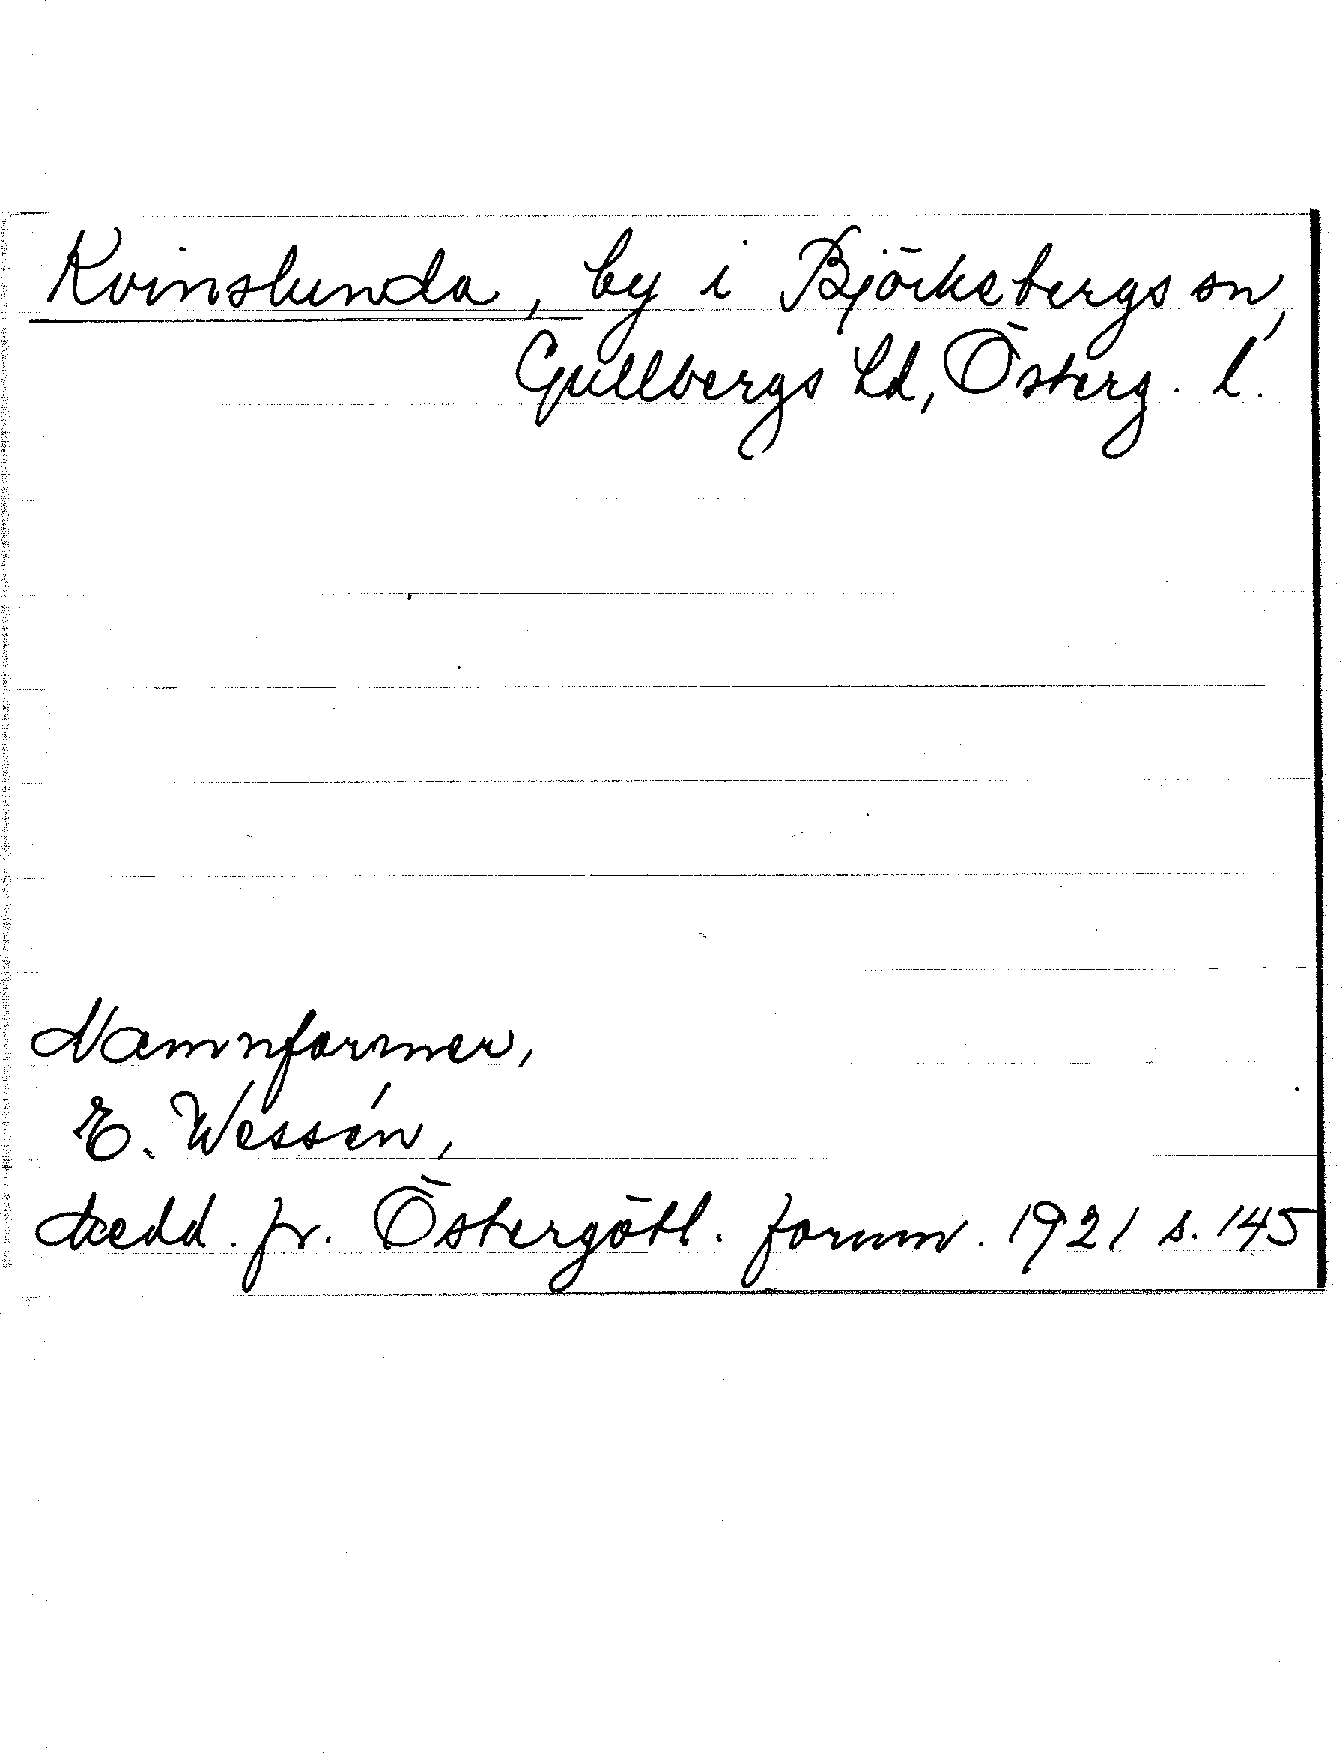 Kvinslunda, by i Björkebergs sn,
Gullbergs hd, Österg. l.
Namnformer,
E. Wessén,
Medd. fr. Östergötl. fornm. 1921 s. 145